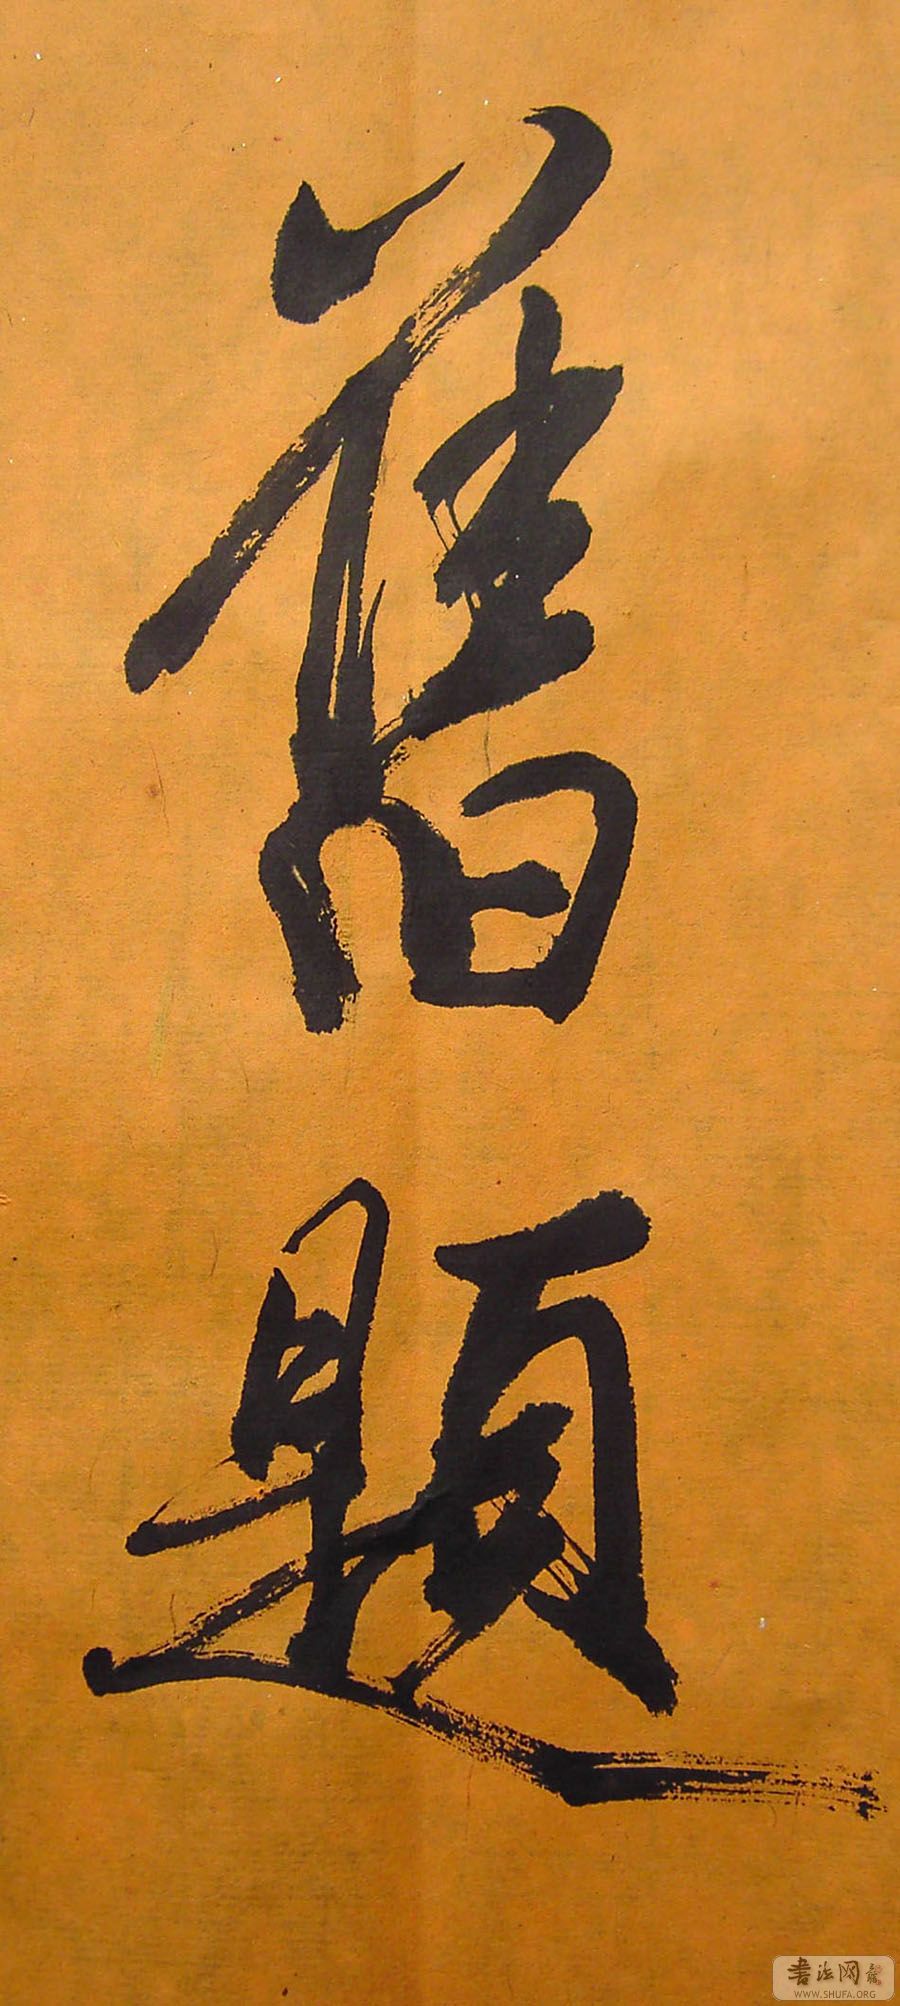 舊題
書法网
WWW.SHUFA.ORG